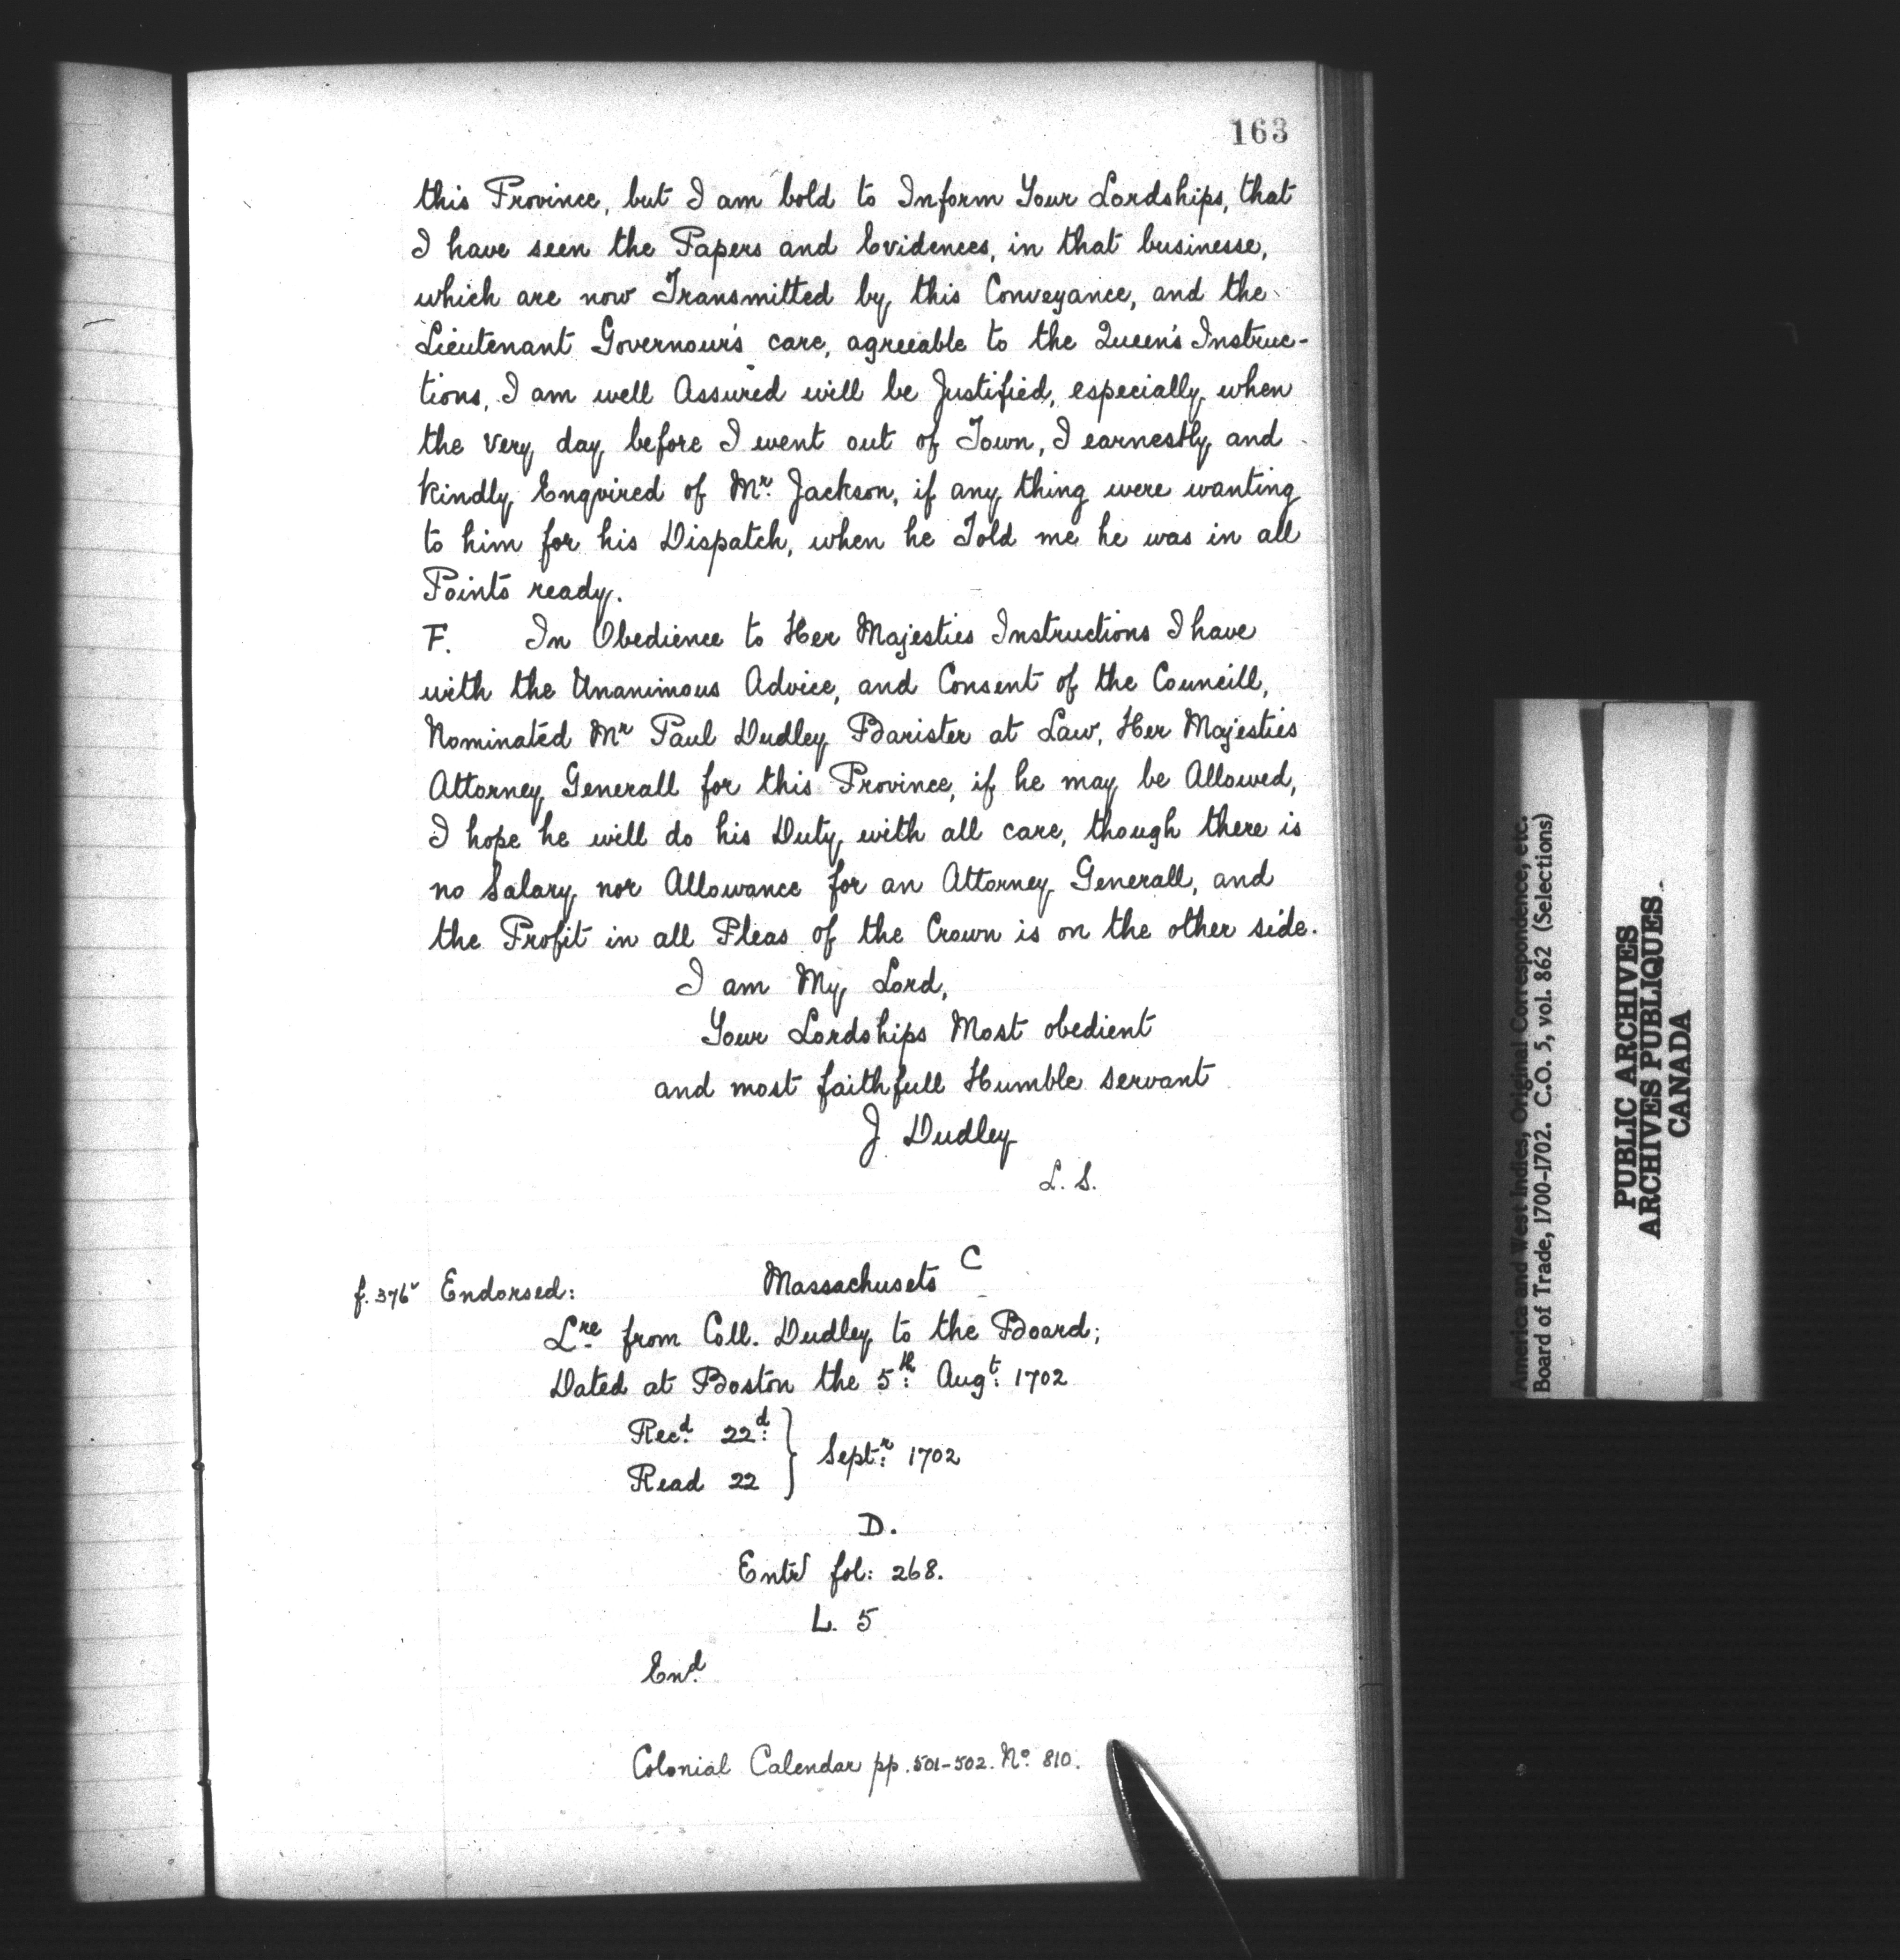 163
this Province, but I am bold to Inform Your Lordships, that
I have seen the Papers and Evidences, in that businesse,
which are now Transmitted by this Conveyance, and the
Lieutenant Governour's care, agreeable to the Queen's Instruc-
tions, I am well Assured will be Justified, especially when
the very day before I went out of Town, I earnestly and
kindly Enqvired of Mr. Jackson, if any thing were wanting
to him for his Dispatch, when he Told me he was in all
Points ready.
F. In Obedience to Her Majesties Instructions I have
with the Unanimous Advice, and Consent of the Councill,
Nominated Mr Paul Dudley Barister at Law, Her Majesties
Attorney Generall for this Province, if he may be Allowed,
I hope he will do his Duty with all care, though there is
no Salary nor Allowance for an Attorney Generall, and
the Profit in all Pleas of the Crown is on the other side.
I am My Lord,
Your Lordships Most obedient
and most faithfull Humble servant
J Dudley
L. S.
f. 376v Endorsed: Massachusets C
Lre from Coll. Dudley to the Board;
Dated at Boston the 5th: Augt: 1702
Recd. 22d:
Read 22 } Septr: 1702
D.
Entd fol: 268.
L. 5
End.
Colonial Calendar pp. 501-502. No. 810.
America and West Indies, Original Correspondence, etc.
Board of Trade, 1700-1702. C.O. 5, vol. 862 (Selections)
PUBLIC ARCHIVES
ARCHIVES PUBLIQUES
CANADA